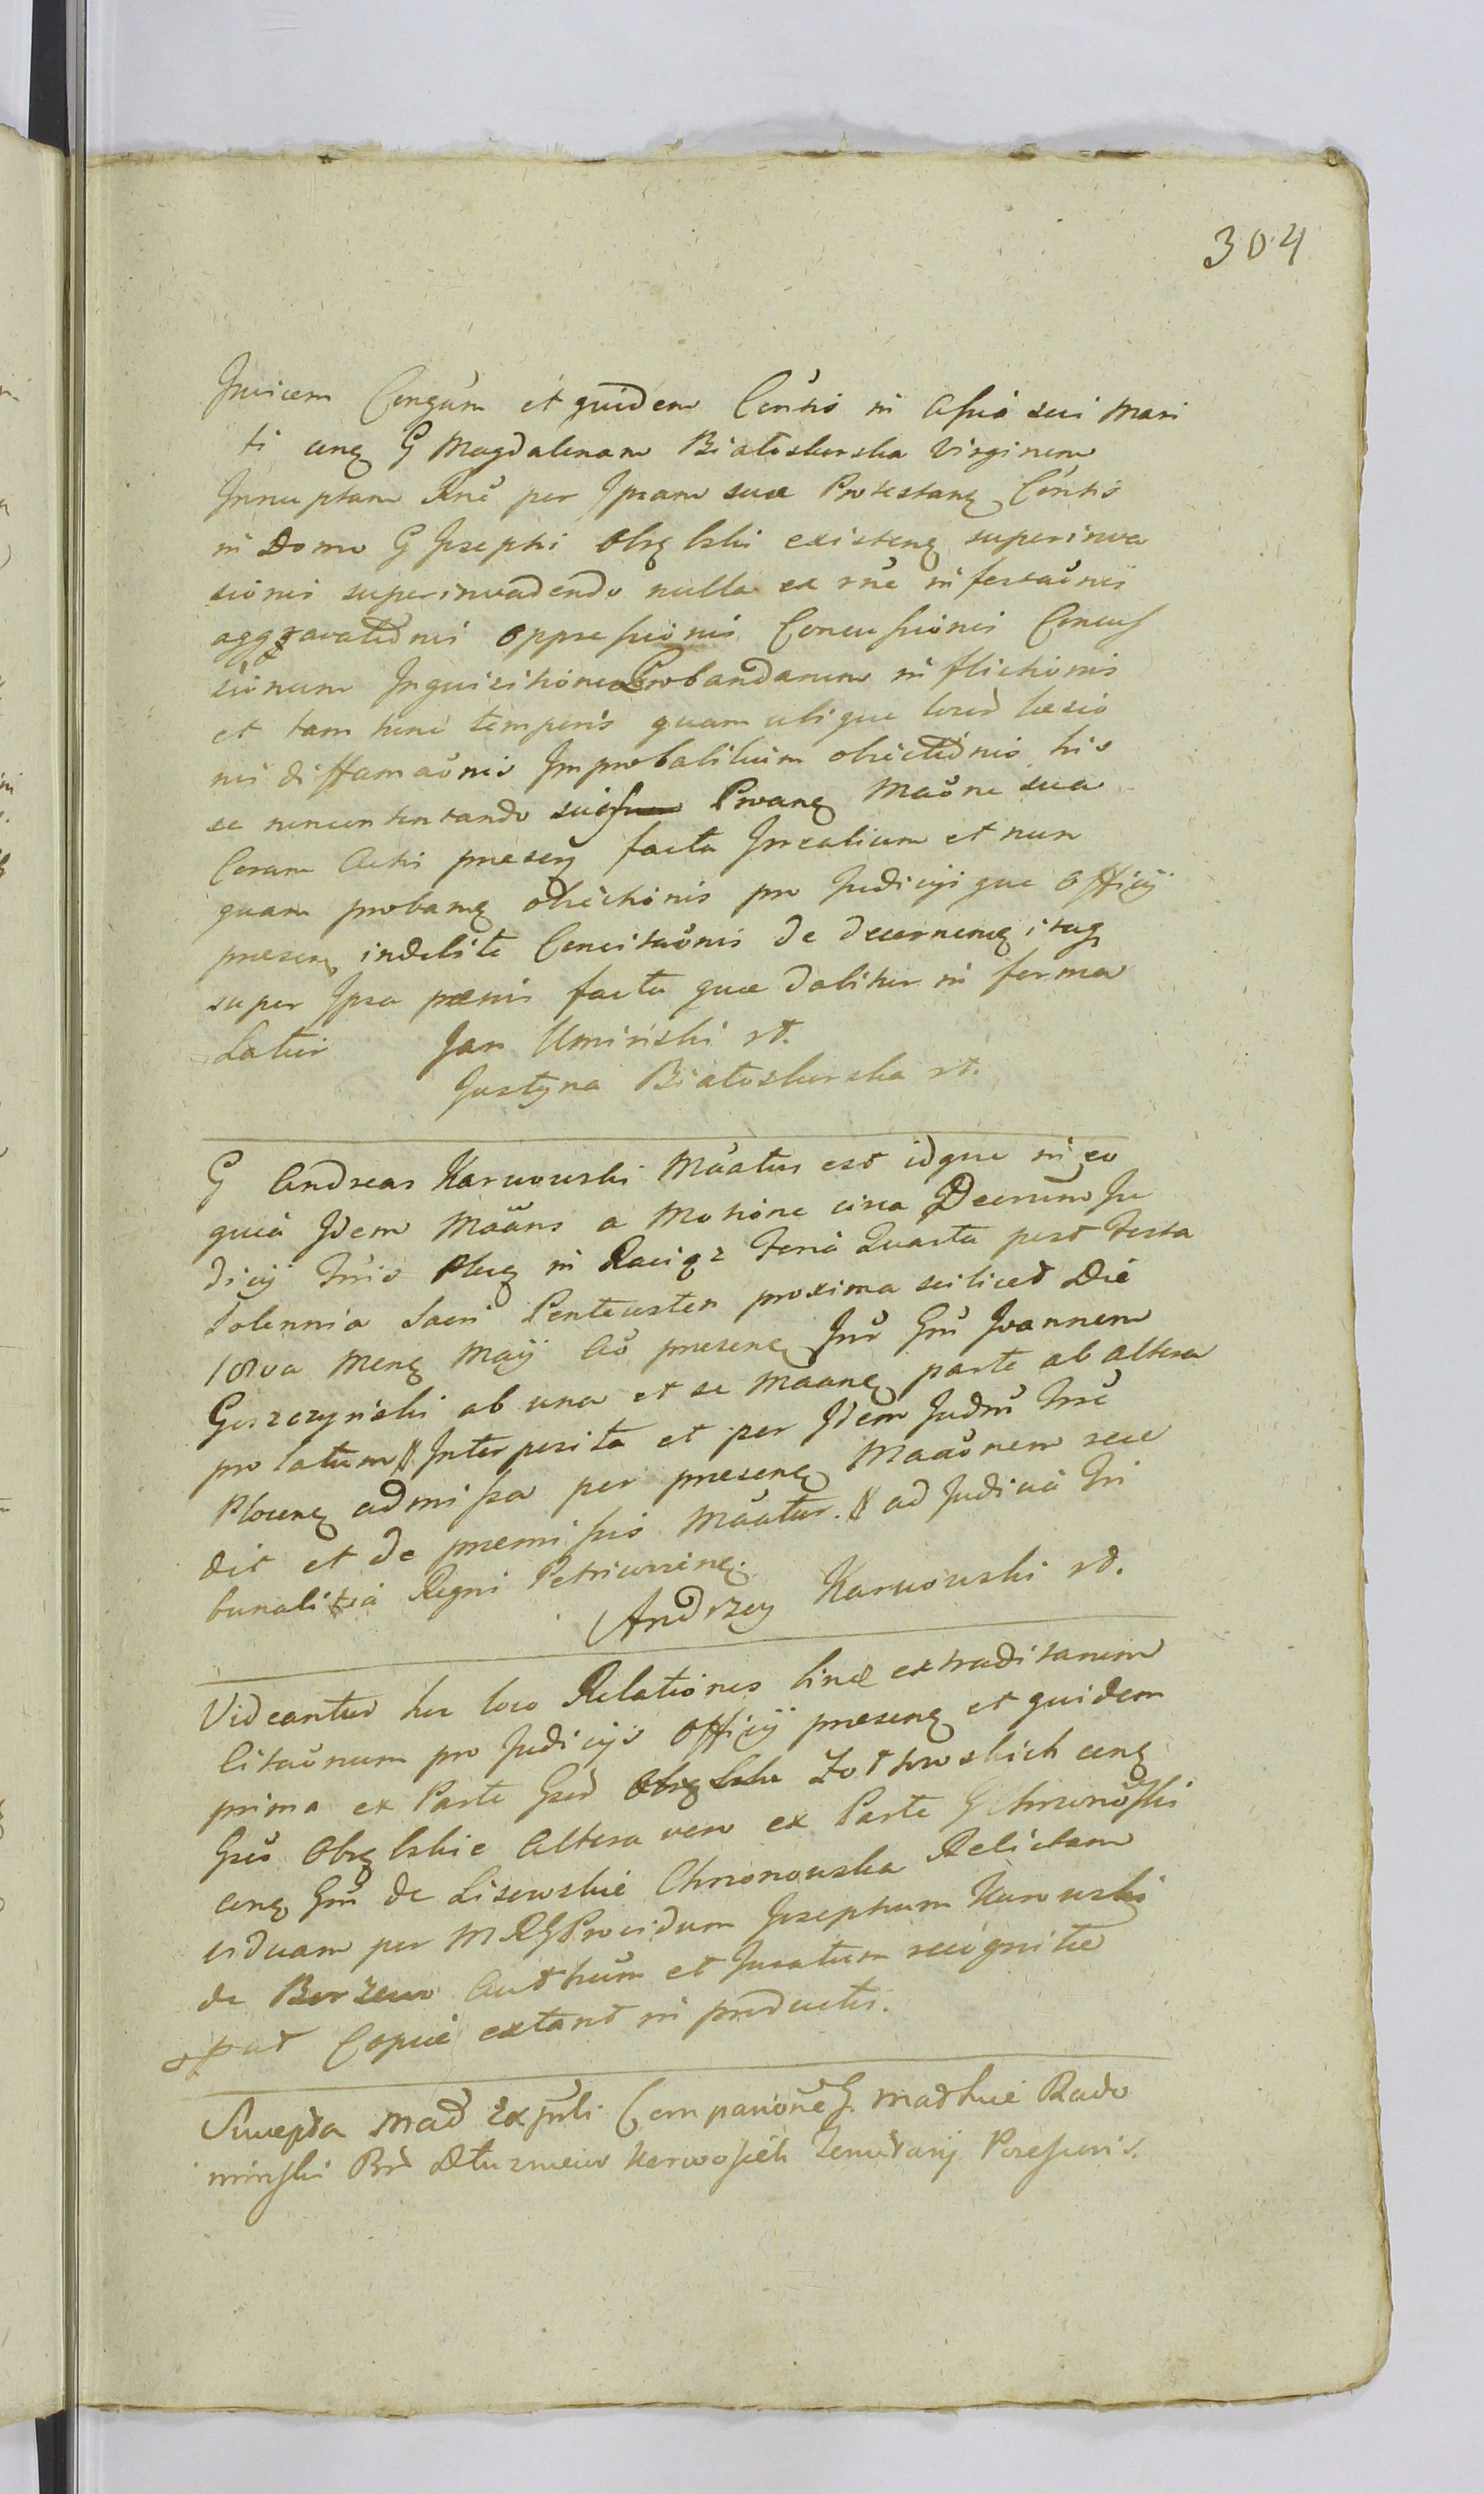 304
Invicem Congũm et quidem Contis in Assia sui Mari
ti cenq G Magdalenam Białoskurska Virginem
Innuptam Rnẽ per Ipsam suae Protestanq Contis
in Domo G Josephi Obrębski existenq superinva
sionis superinvadendo nulla ex rnẽ infestaõnis
aggravatiõnis oppressionis Concussionis Concus
sionum Inquisitione Probandarum inflictionis
et tam hunc temporis quam ubique locor̃ laesio
nis diffamaõnis Improbabilium obiectiõnis his
se non contentando suis Proanq Maõne sua
Coram Actis presenq facta Irrealium et nun
quam probanq obiectionis pro Judicijque Officij
presenq indebite Concitaõnis de decernenq itaq
super Ipsa praemis facta quae dabitur in forma
Latius Jan Umiński rt.
Justyna Białoskurska rt.
G Andreas Karwowski Mãatus est idque in eo
quia Idem Mãans a Motione circa Decretum Ju
dicij Trris Plocq in Raciąz Feria Quarta post Festa
Solennia Sacri Pentecosten proxima scilicet Die
18va Menq Maij Aõ presenq Intr̃ Gm̃ Joannem
Goszczyński ab una et se Mãanq parte ab altera
prolatum Interposita et per Idem Judm̃ Trrẽ
Plocenq admissa per presenq Mãaõnem rece
dit et de premissis Mãatur. ad Judicia Tri
bunalitia Regni Petricovienq.
Andrzey Karwowski rt.
Videantur hoc loco Relationes binae extraditarum
Citaõnum pro Judicijs Officij presenq et quidem
prima ex Parte Gsor̃ Zothowskich cenq
Gsos Obrębskie Altera vero ex Parte G Chronoski
cenq Gm̃ de Lisowskie Chronowska Relictam
viduam per MRG Providum Josephum Kurowski
de Borzewo Authum et Juratum recognitae
ut Copiae extant in productis.
Suscepta Mad Exp̃uli Comparõne G. Mathie Rado
minski Br̃ Dłuzniewo Karwosieki Tenutarij Possessoris.